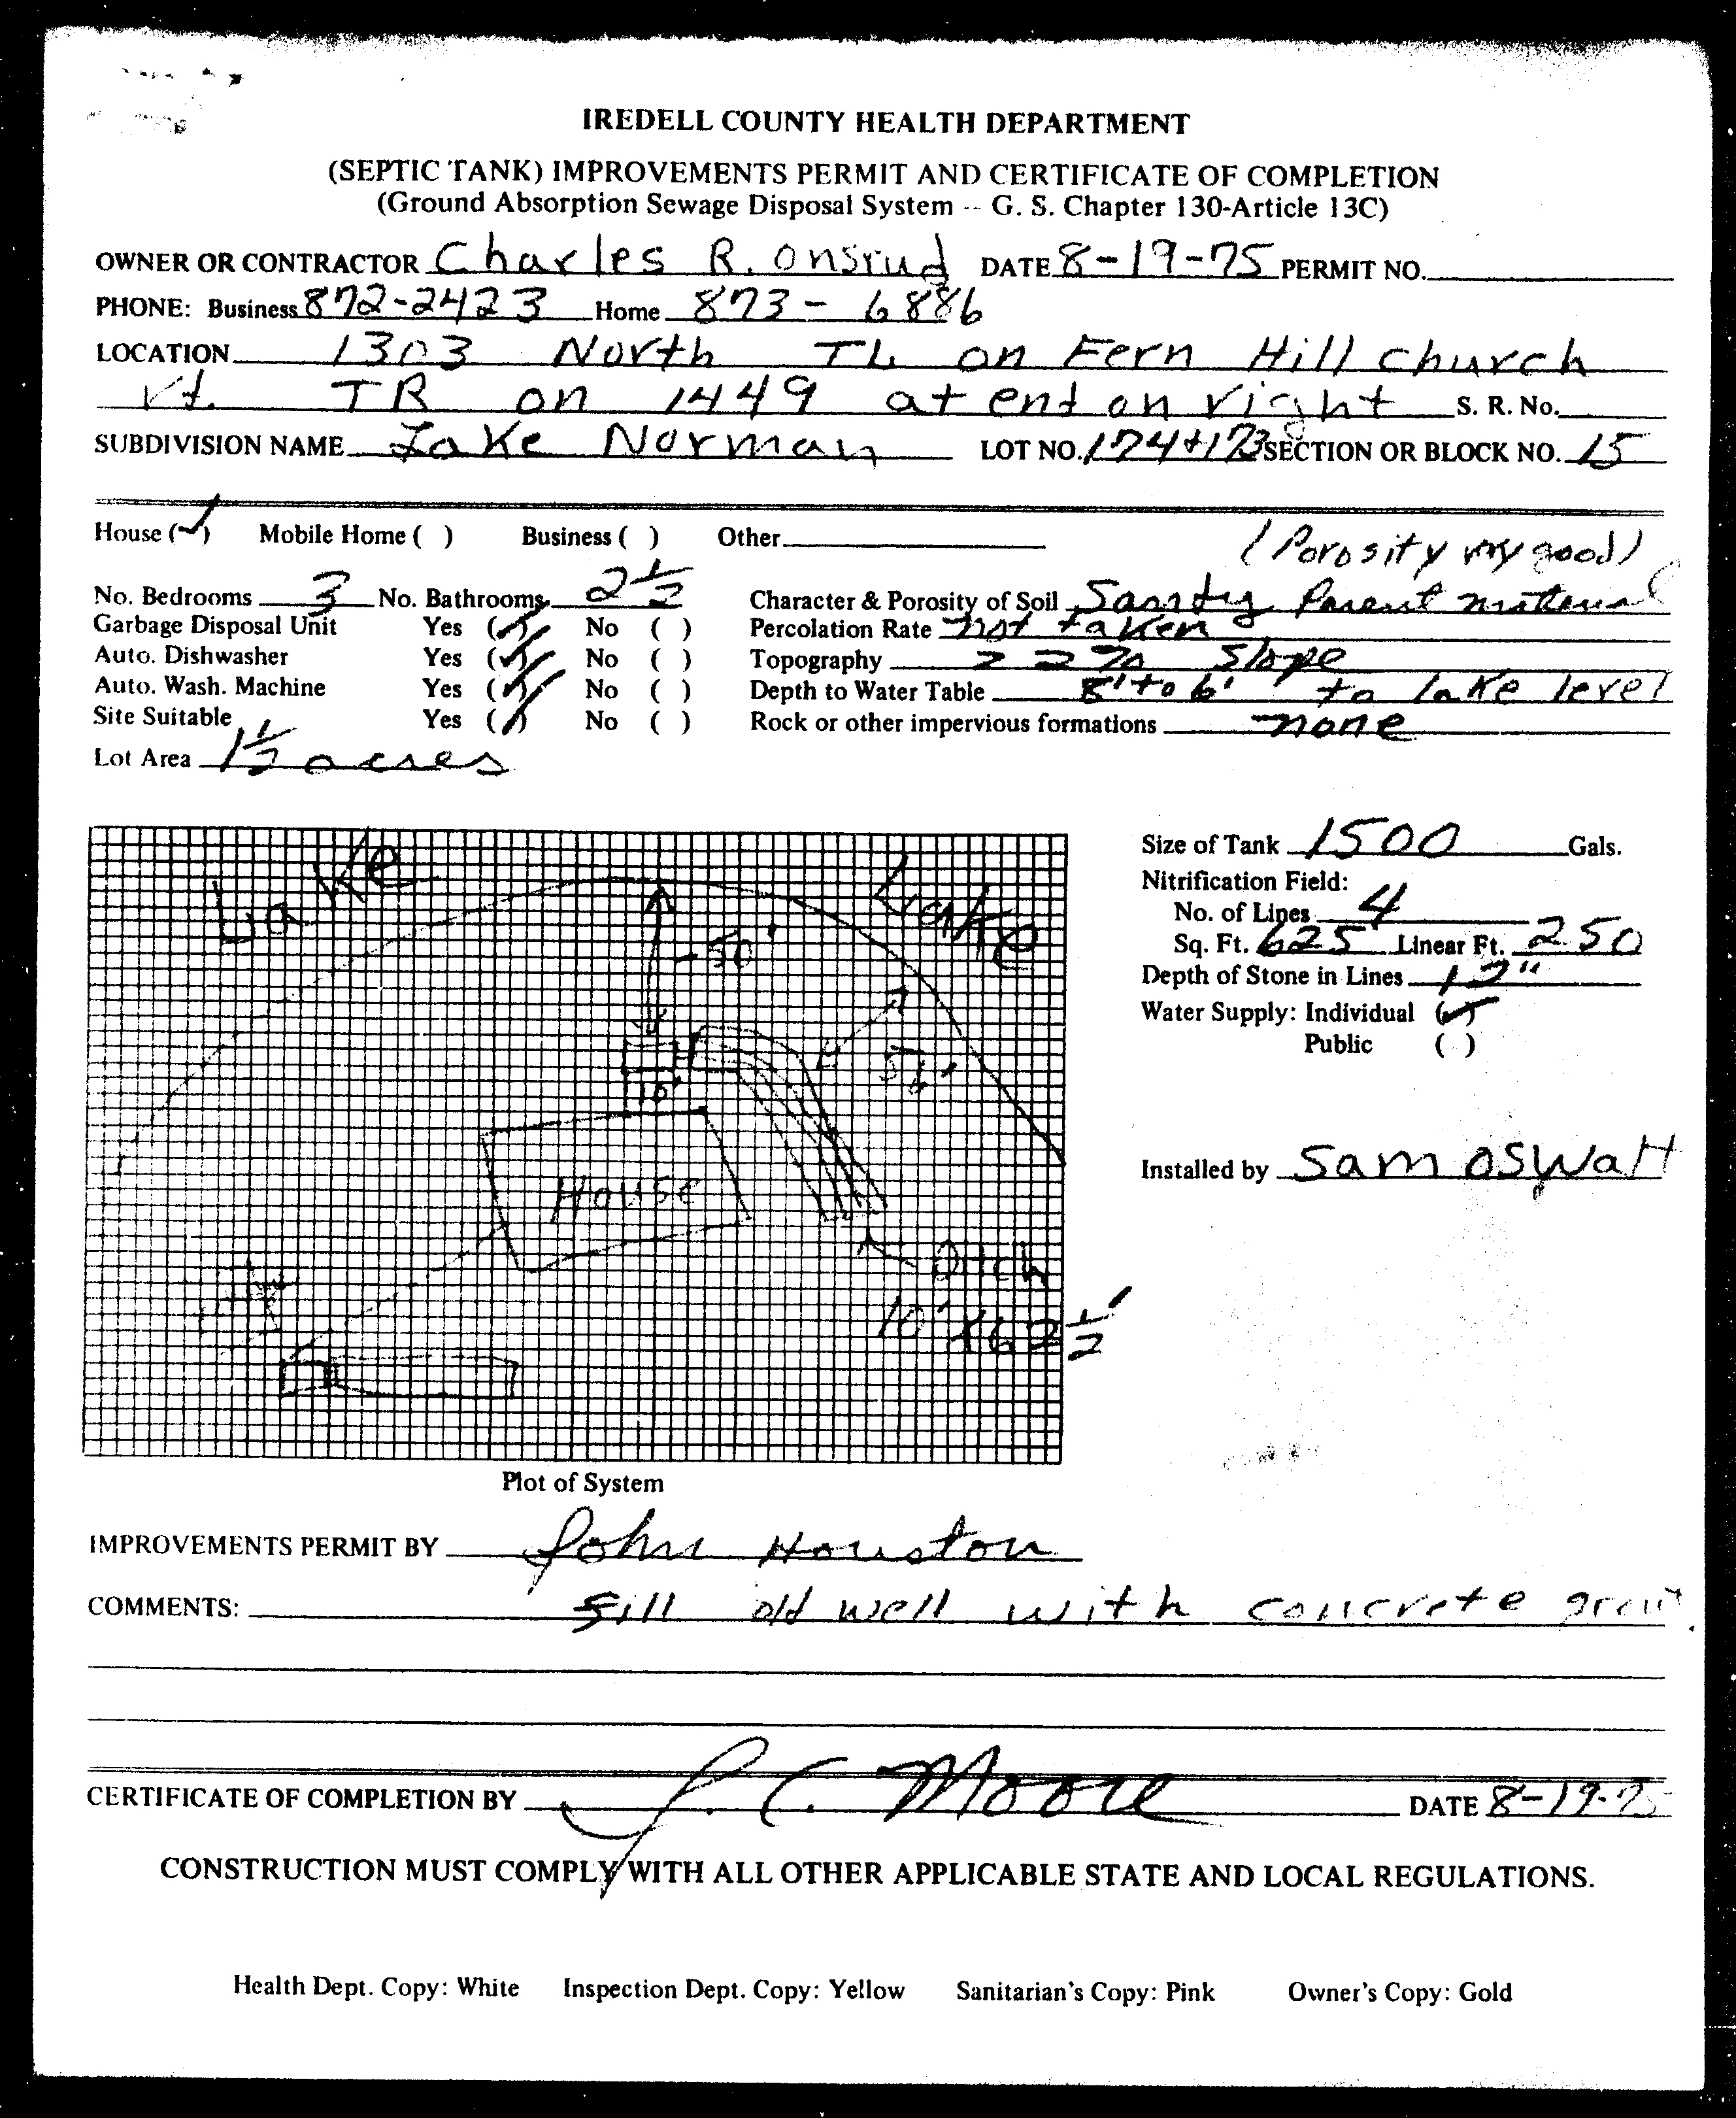 IREDELL COUNTY HEALTH DEPARTMENT
(SEPTIC TANK) IMPROVEMENTS PERMIT AND CERTIFICATE OF COMPLETION
(Ground Absorption Sewage Disposal System -- G. S. Chapter 130-Article 13C)
OWNER OR CONTRACTOR Charles R. Onsrud DATE 8-19-75 PERMIT NO.
PHONE: Business 872-2423 Home 873-6886
LOCATION 1303 North TL on Fern Hill church
rt. TR on 1449 at end on right S. R. No.
SUBDIVISION NAME Lake Norman LOT NO. 174+173 SECTION OR BLOCK NO. 15
House (✓) Mobile Home ( ) Business ( ) Other
(Porosity very good)
No. Bedrooms 3 No. Bathrooms 2 1/2 Character & Porosity of Soil Sandy Parent material
Garbage Disposal Unit Yes (✓) No ( ) Percolation Rate not taken
Auto. Dishwasher Yes (✓) No ( ) Topography 2 % Slope
Auto. Wash. Machine Yes (✓) No ( ) Depth to Water Table 8' to 6' to lake level
Site Suitable Yes (✓) No ( ) Rock or other impervious formations none
Lot Area 1 1/2 acres
Lake
50'
10'
House
Ditch
10' x 62 1/2'
Size of Tank 1500 Gals.
Nitrification Field:
No. of Lines 4
Sq. Ft. 625 Linear Ft. 250
Depth of Stone in Lines 12"
Water Supply: Individual (✓)
Public ( )
Installed by Sam Oswalt
Plot of System
IMPROVEMENTS PERMIT BY John Houston
COMMENTS: Fill old well with concrete grout
CERTIFICATE OF COMPLETION BY J. C. Moore DATE 8-19-75
CONSTRUCTION MUST COMPLY WITH ALL OTHER APPLICABLE STATE AND LOCAL REGULATIONS.
Health Dept. Copy: White Inspection Dept. Copy: Yellow Sanitarian's Copy: Pink Owner's Copy: Gold